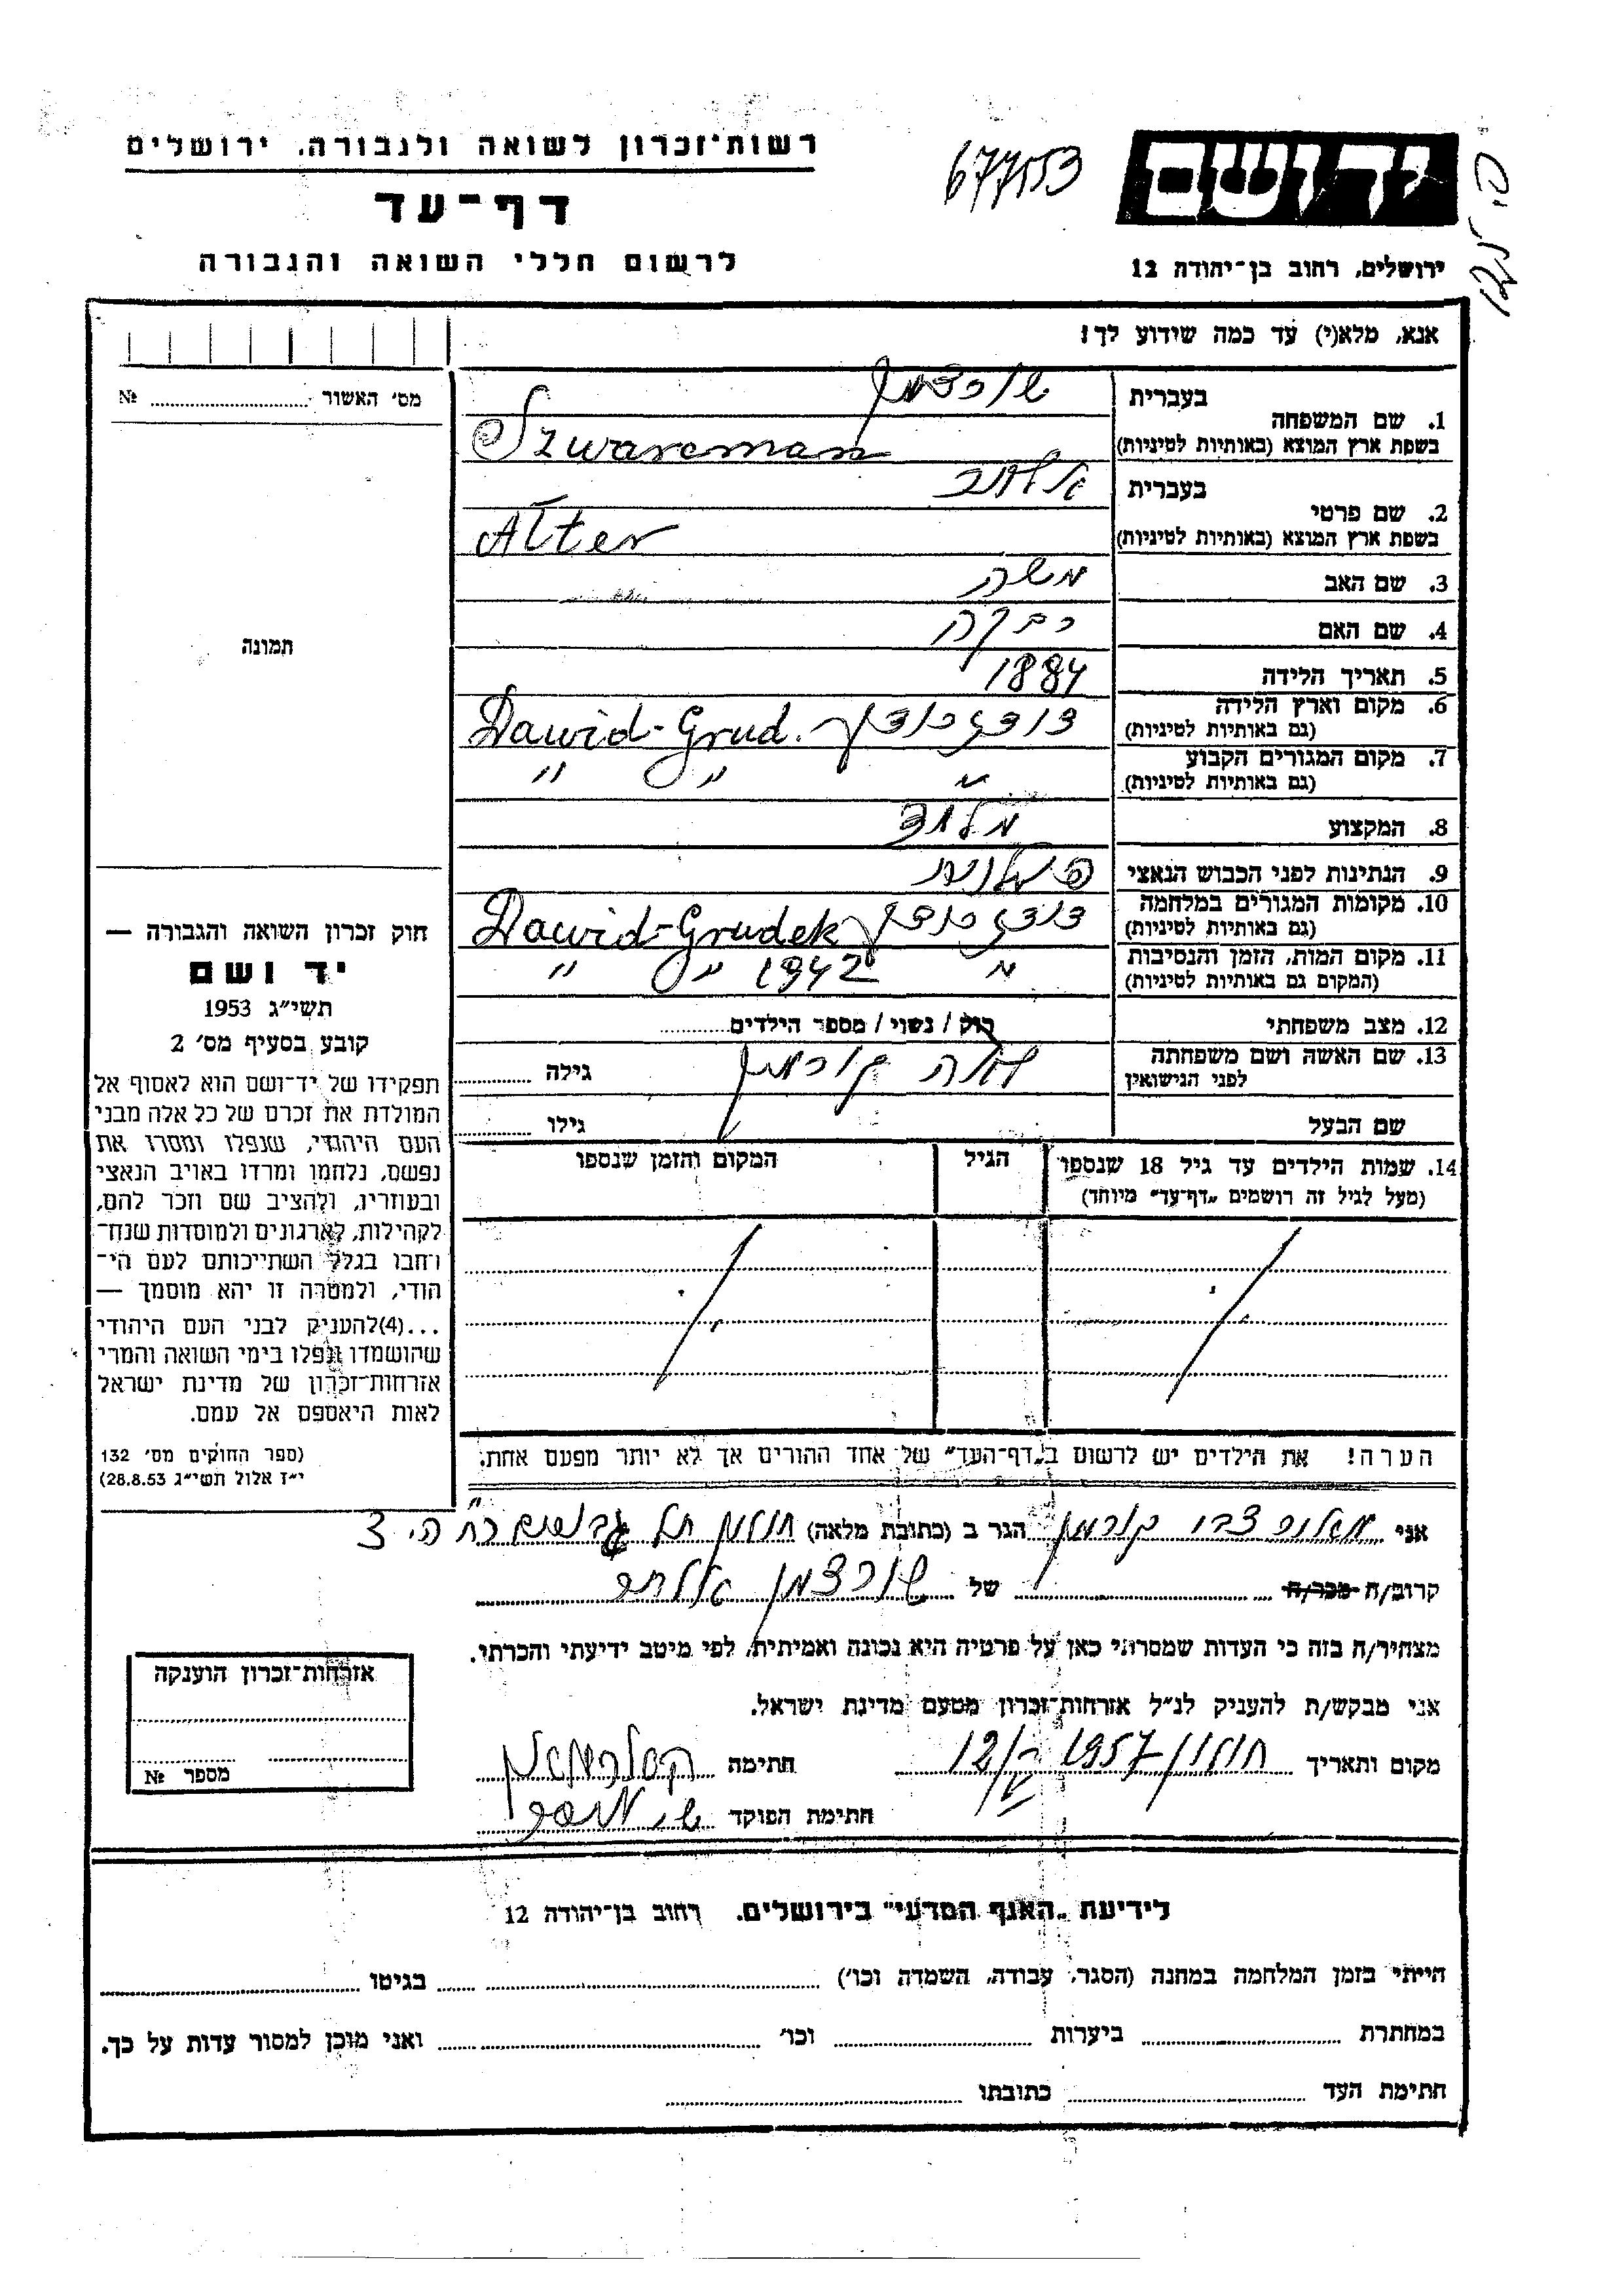 רשות־זכרון לשואה ולגבורה, ירושלים
דף־עד
לרשום חללי השואה והגבורה
677553
יד ושם
ירושלים, רחוב בן־יהודה 12
אנא, מלא(י) עד כמה שידוע לך!
מס' האשור № 
תמונה
1. שם המשפחה בעברית שורצמן
בשפת ארץ המוצא (באותיות לטיניות) Szwarcman
2. שם פרטי בעברית אלתר
בשפת ארץ המוצא (באותיות לטיניות) Alter
3. שם האב משה
4. שם האם רבקה
5. תאריך הלידה 1884
6. מקום וארץ הלידה דודגרודק Dawid-Grud.
(גם באותיות לטיניות)
7. מקום המגורים הקבוע " " "
(גם באותיות לטיניות)
8. המקצוע מלמד
9. הנתינות לפני הכבוש הנאצי פולנית
10. מקומות המגורים במלחמה דודגרודק Dawid-Grudek
(גם באותיות לטיניות)
11. מקום המות, הזמן והנסיבות " 1942 " "
(המקום גם באותיות לטיניות)
12. מצב משפחתי רוק / נשוי / מספר הילדים
13. שם האשה ושם משפחתה לאה גורמן גילה
לפני הנישואין
שם הבעל גילו
14. שמות הילדים עד גיל 18 שנספו הגיל המקום והזמן שנספו
(מעל לגיל זה רושמים „דף־עד" מיוחד)
חוק זכרון השואה והגבורה —
יד ושם
תשי"ג 1953
קובע בסעיף מס' 2
תפקידו של יד־ושם הוא לאסוף אל
המולדת את זכרם של כל אלה מבני
העם היהודי, שנפלו ומסרו את
נפשם, נלחמו ומרדו באויב הנאצי
ובעוזריו, ולהציב שם וזכר להם,
לקהילות, לארגונים ולמוסדות שנח־
רבו בגלל השתייכותם לעם הי־
הודי, ולמטרה זו יהא מוסמך —
...(4)להעניק לבני העם היהודי
שהושמדו ונפלו בימי השואה והמרי
אזרחות־זכרון של מדינת ישראל
לאות היאספם אל עמם.
(ספר החוקים מס' 132
י"ז אלול תשי"ג 28.8.53)
הערה! את הילדים יש לרשום ב„דף־העד" של אחד ההורים אך לא יותר מפעם אחת.
אני גורמן הגר ב (כתובת מלאה) חולון תל גבורים רח
קרוב/ה מכר/ה של שורצמן אלתר
מצהיר/ה בזה כי העדות שמסרתי כאן על פרטיה היא נכונה ואמיתית, לפי מיטב ידיעתי והכרתי.
אני מבקש/ת להעניק לנ"ל אזרחות־זכרון מטעם מדינת ישראל.
מקום ותאריך חולון 1957 חתימה
חתימת הפוקד
אזרחות־זכרון הוענקה
מספר №
לידיעת „האגף המדעי" בירושלים, רחוב בן־יהודה 12
הייתי בזמן המלחמה במחנה (הסגר, עבודה, השמדה וכו') בגיטו
במחתרת ביערות וכו' ואני מוכן למסור עדות על כך.
חתימת העד כתובתו